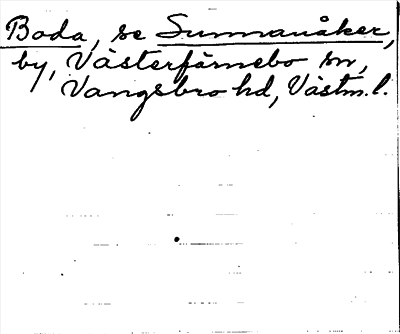 Boda, se Sunnanåker,
by, Västerfärnebo sn,
Vangsbro hd, Västm. l.